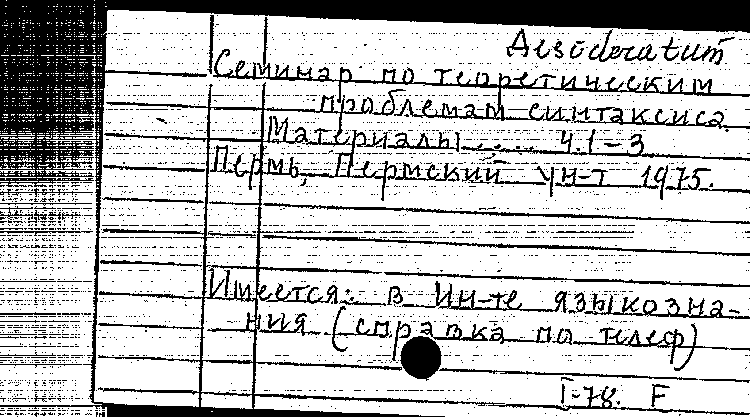 Desideratum
Семинар по теоретическим
проблемам синтаксиса.
Материалы..... Ч.1-3
Пермь, Пермский ун-т 1975.
Имеется: в Ин-те языкозна-
ния (справка по телеф)
I-78. F